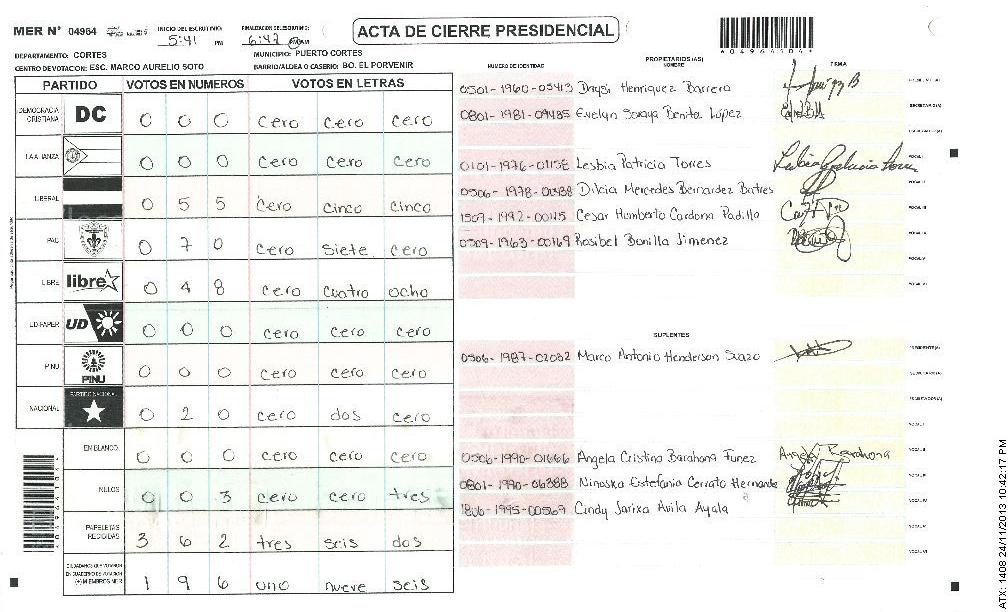 MER N° 04964 INICIO DEL ESCRUTINIO: 5:41 PM FINALIZACION DEL ESCRUTINIO: 6:47 ACTA DE CIERRE PRESIDENCIAL
04964104
DEPARTAMENTO: CORTES MUNICIPIO: PUERTO CORTES
CENTRO DE VOTACION: ESC. MARCO AURELIO SOTO BARRIO/ALDEA O CASERIO: BO. EL PORVENIR
PARTIDO VOTOS EN NUMEROS VOTOS EN LETRAS
DEMOCRACIA CRISTIANA DC 0 0 0 cero cero cero
LA ALIANZA 0 0 0 cero cero cero
LIBERAL 0 5 5 cero cinco cinco
PAC 0 7 0 cero siete cero
LIBRE libre 0 4 8 cero cuatro ocho
UD-FAPER UD 0 0 0 cero cero cero
PINU PINU 0 0 0 cero cero cero
NACIONAL PARTIDO NACIONAL 0 2 0 cero dos cero
EN BLANCO 0 0 0 cero cero cero
NULOS 0 0 3 cero cero tres
PAPELETAS RECIBIDAS 3 6 2 tres seis dos
CIUDADANOS QUE VOTARON EN CUADERNO DE VOTACION (+) MIEMBROS MER 1 9 6 uno nueve seis
NUMERO DE IDENTIDAD PROPIETARIOS (AS) NOMBRE FIRMA
0501-1960-05413 Daysi Henriquez Barrera
0801-1981-09485 Evelyn Soraya Benita López SECRETARIO(A)
Lesbia Patricia Torres
Dilcia Mercedes Bernardez Batres
1507-1992-00115 Cesar Humberto Cardona Padilla
0509-1963-00169 Rosibel Bonilla Jimenez
SUPLENTES
0506-1987-02032 Marco Antonio Henderson Suazo PRESIDENTE(A)
0506-1990-01666 Angela Cristina Barahona Funez Angela Barahona
0801-1990-06388 Ninoska Estefania Cerrato Hernande
1806-1995-00569 Cindy Jarixa Avila Ayala
ATX: 1408 24/11/2013 10:42:17 PM